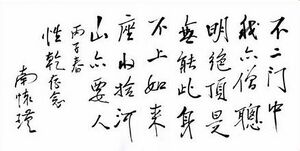 不二門中
我亦僧聰
明絕頂是
無能此身
不上如來
座收拾河
山亦要人
丙子春
性乾存念
南懷瑾